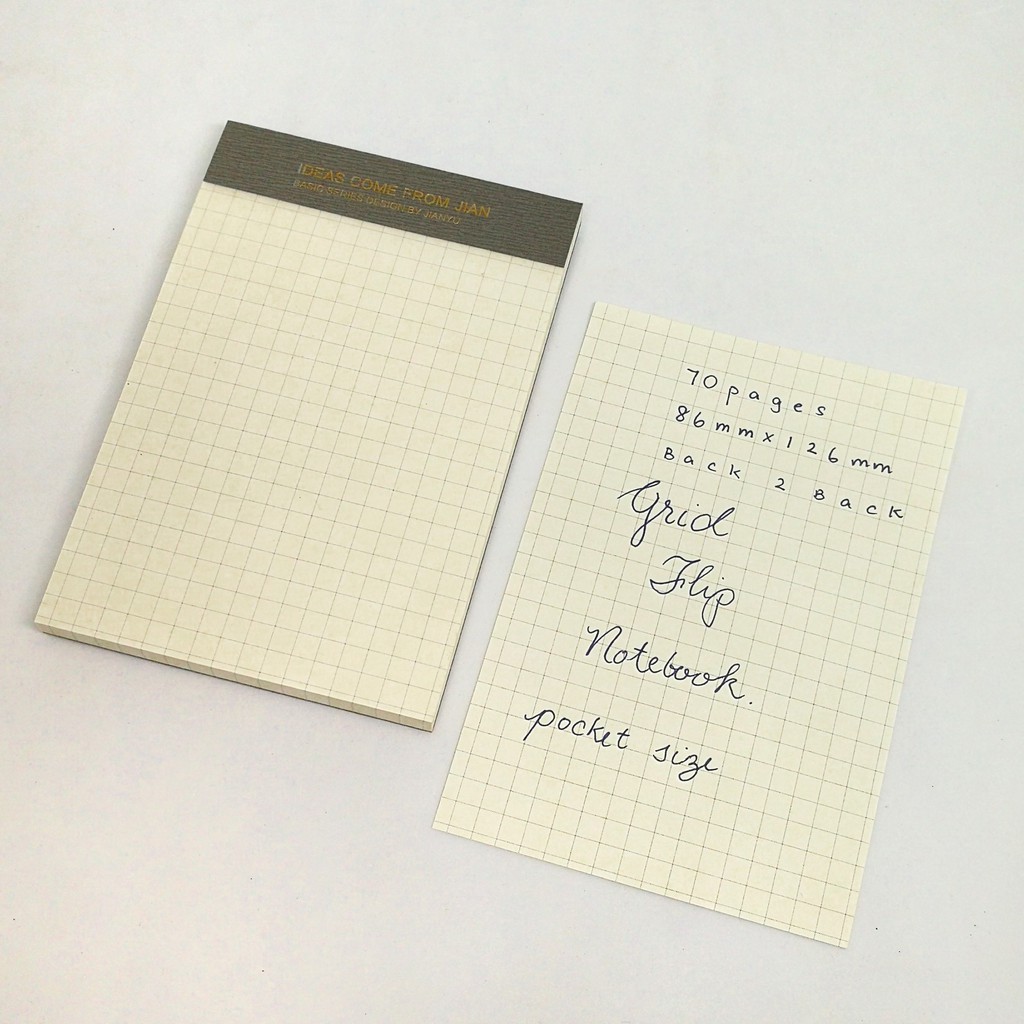 IDEAS COME FROM JIAN
BASIC SERIES DESIGN BY JIANYU
70 pages
86mm x 126mm
Back 2 Back
Grid
Flip
Notebook.
pocket size